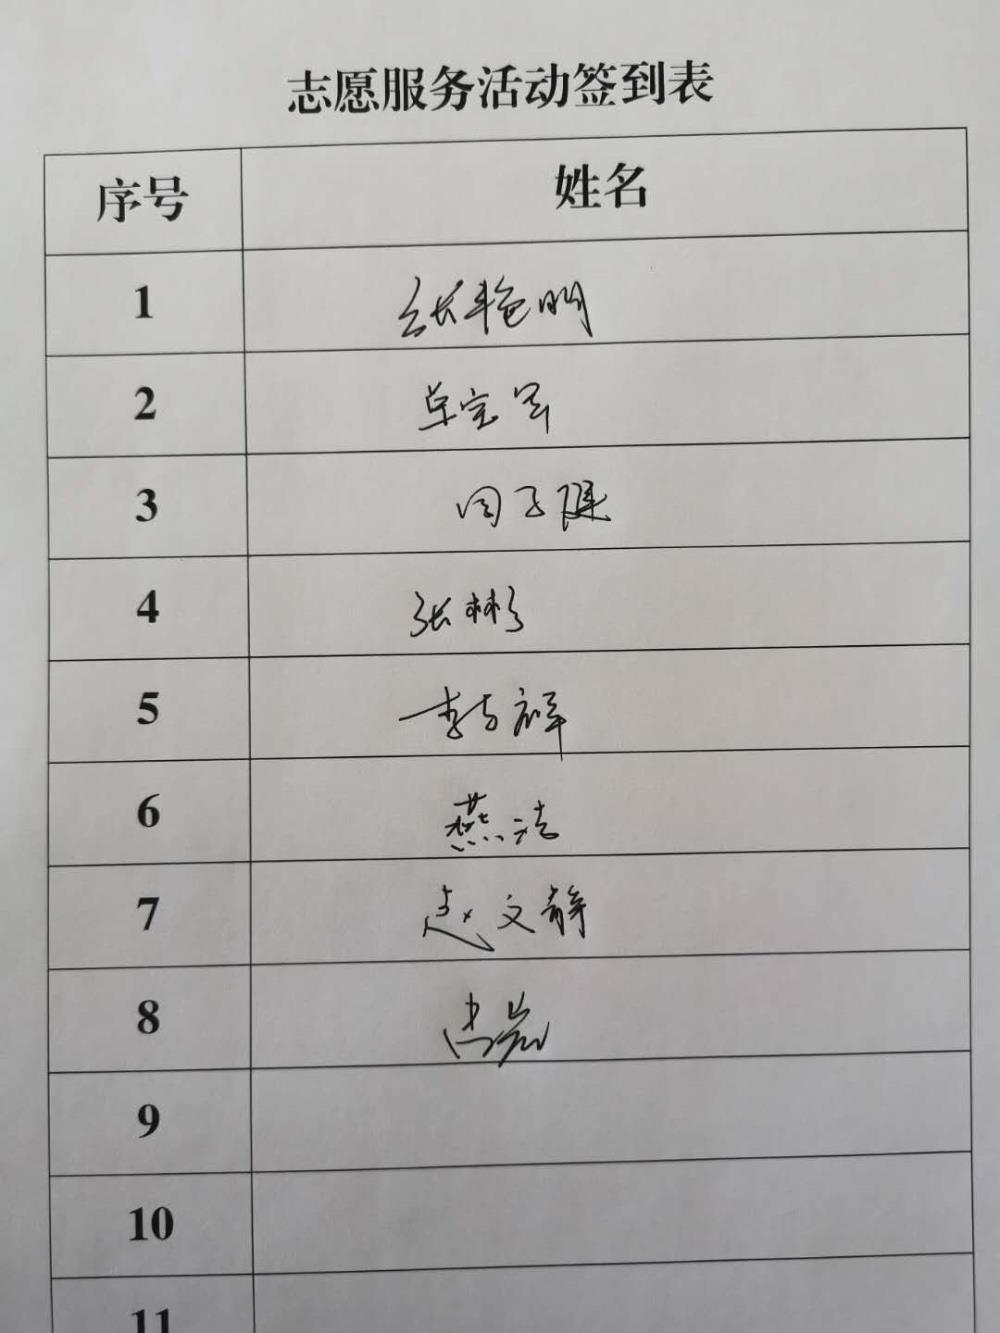 志愿服务活动签到表
序号 姓名
1 张艳明
2 卓宝军
3 周子健
4 张彬
5 李方祥
6 燕洁
7 赵文静
8 肖岩
9
10
11